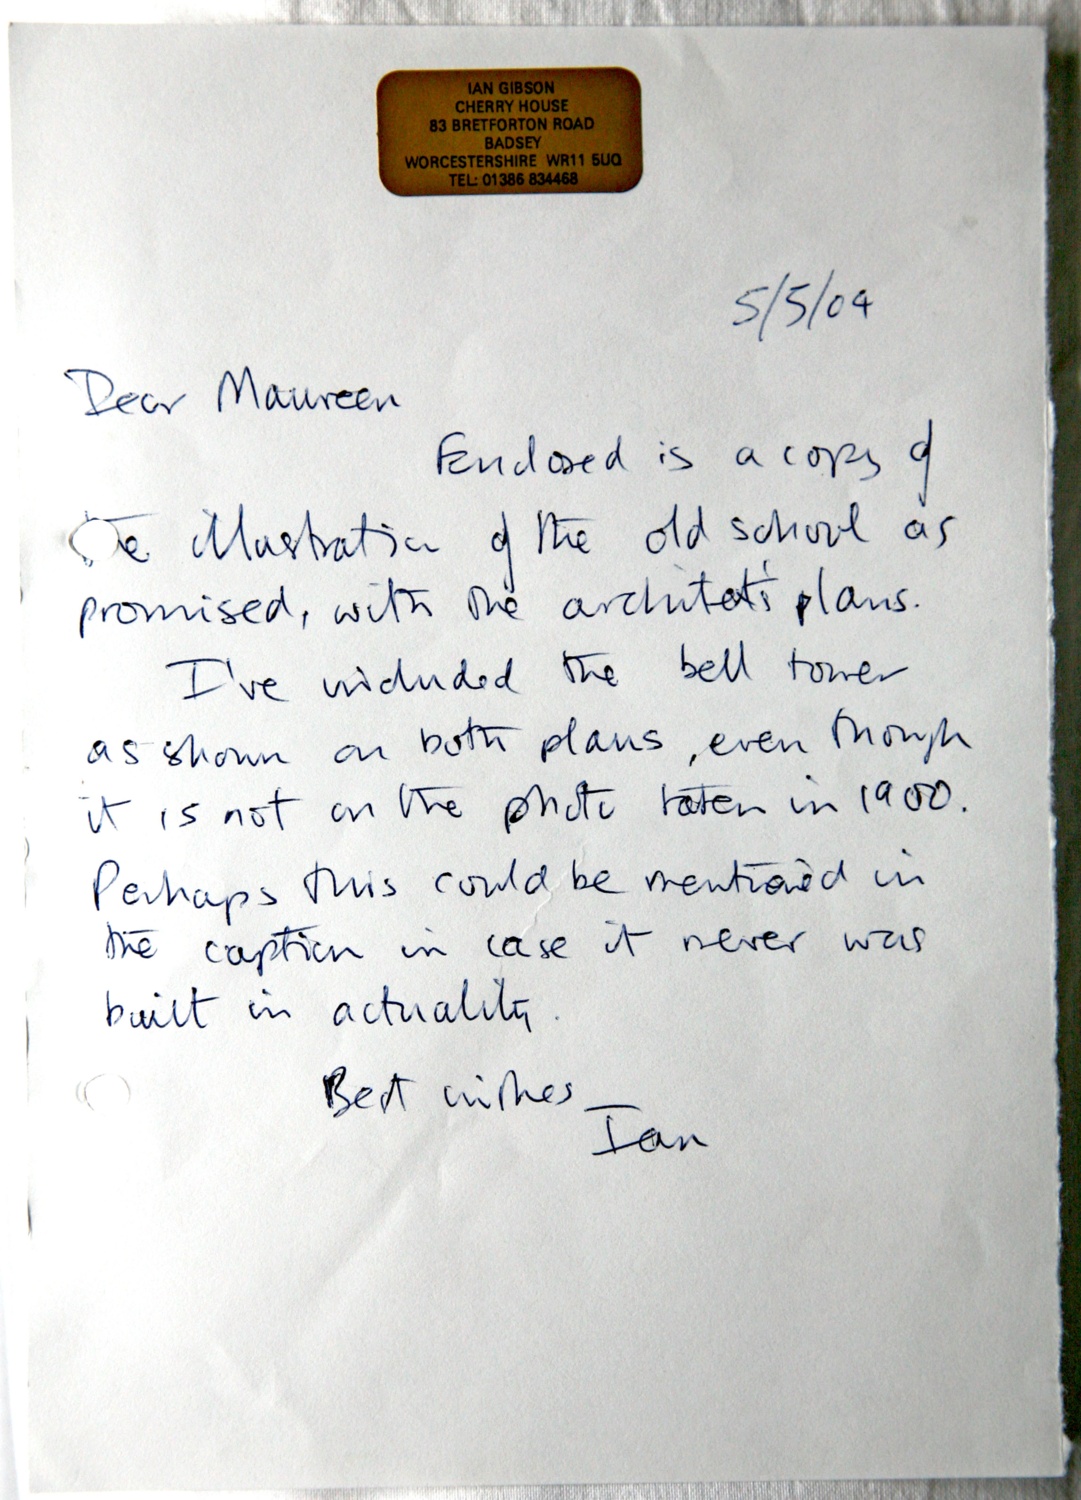 IAN GIBSON
CHERRY HOUSE
83 BRETFORTON ROAD
BADSEY
WORCESTERSHIRE WR11 5UQ
TEL: 01386 834468
5/5/04
Dear Maureen
Enclosed is a copy of
the illustration of the old school as
promised, with the architect's plans.
I've included the bell tower
as shown on both plans, even though
it is not on the photo taken in 1900.
Perhaps this could be mentioned in
the caption in case it never was
built in actuality.
Best wishes
Ian